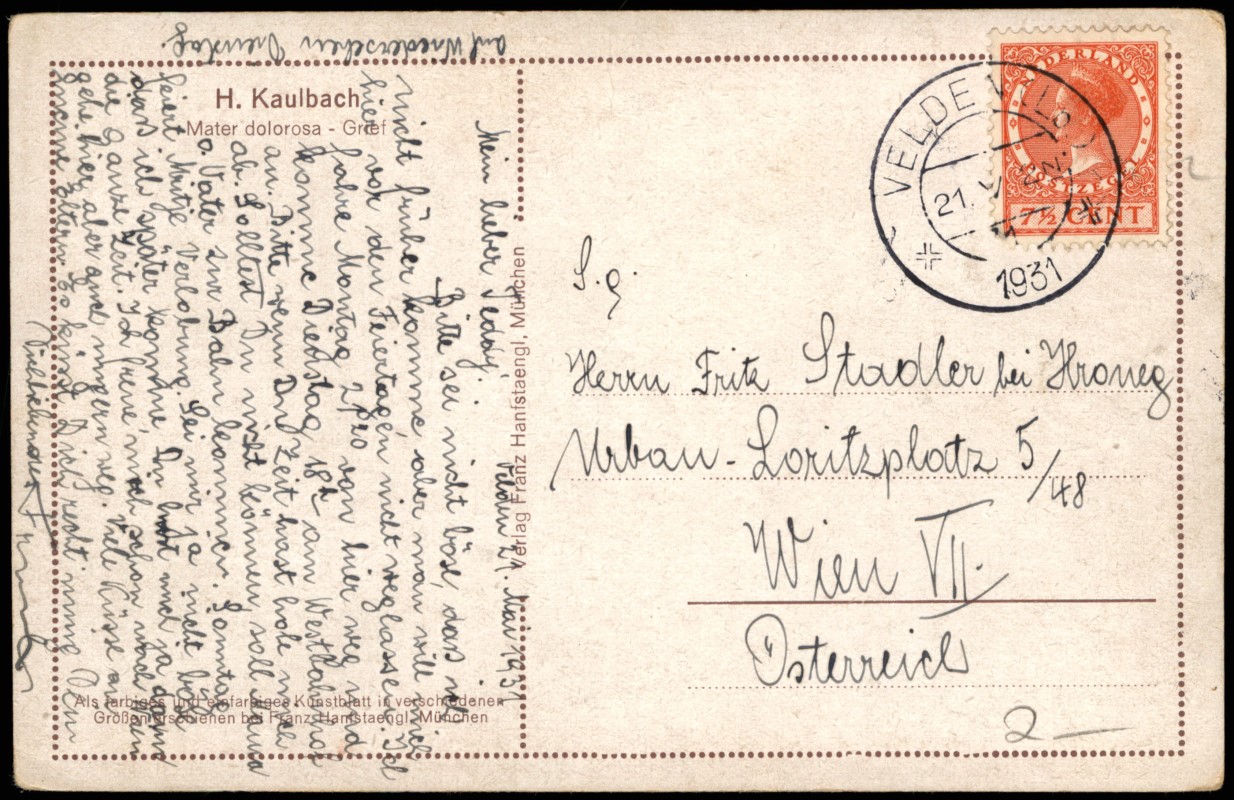 auf Wiedersehen Dienstag.
H. Kaulbach
Mater dolorosa - Grief
Velsen 21. Mai 1931
Mein lieber
Bitte sei nicht böse, dass ich
nicht früher komme aber man will mich
hier vor den Feiertagen nicht weglassen. Ich
fahre Montag 2h20 von hier weg und
komme Dienstag 18h am Westbahnhof
an. Bitte wenn Du Zeit hast hole mich
ab. Solltest Du nicht können, soll Mama
o. Vater zur Bahn kommen. Sonntag
feiert Mitzje Verlobung. Sei mir ja nicht bös
dass ich später komme. Du hast mich ja dann
die ganze Zeit. Ich freue mich schon
gehe hier aber auch ungern weg. Viele Küsse an
meine Eltern. Es küsst Dich recht innig Dein
Verlag Franz Hanfstaengl, München
Als farbiges und einfarbiges Kunstblatt in verschiedenen
Größen erschienen bei Franz Hanfstaengl, München
NEDERLAND
POSTZEGEL
7½ CENT
VELDE WILD
21. V
1931
S. g
Herrn Fritz Stadler bei Kroneg
Urban-Loritzplatz 5/48
Wien VII.
Österreich
2 —